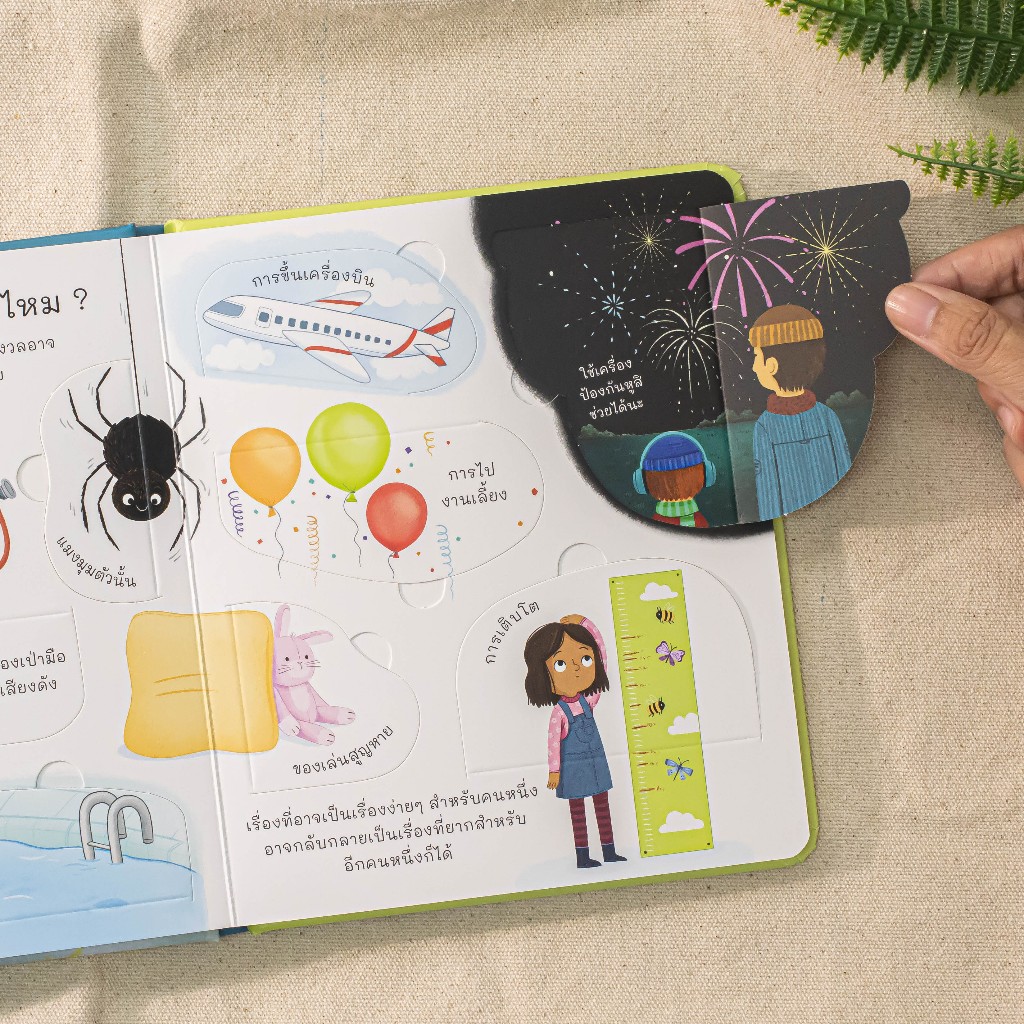 ไหม ?
การขึ้นเครื่องบิน
ใช้เครื่อง
ป้องกันหูสิ
ช่วยได้นะ
การไป
งานเลี้ยง
แมงมุมตัวนั้น
การเติบโต
เสียงดัง
ของเล่นสูญหาย
เรื่องที่อาจเป็นเรื่องง่ายๆ สำหรับคนหนึ่ง
อาจกลับกลายเป็นเรื่องที่ยากสำหรับ
อีกคนหนึ่งก็ได้